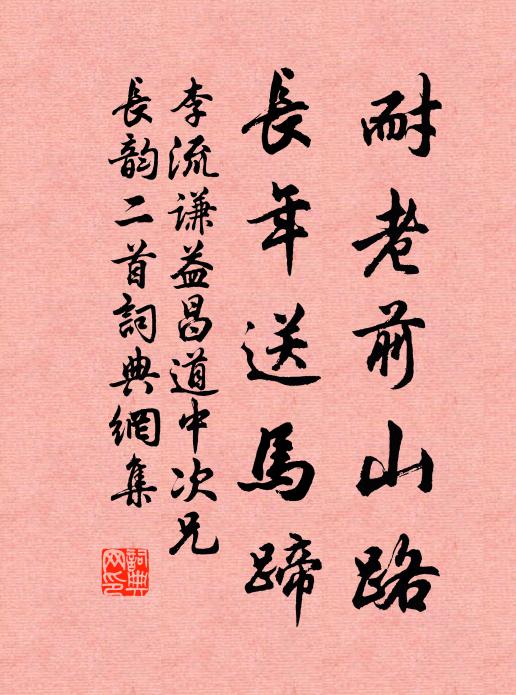 耐老前山路
長年送馬蹄
李流謙益昌道中次兄
長韵二首詞典網集
詞典網印